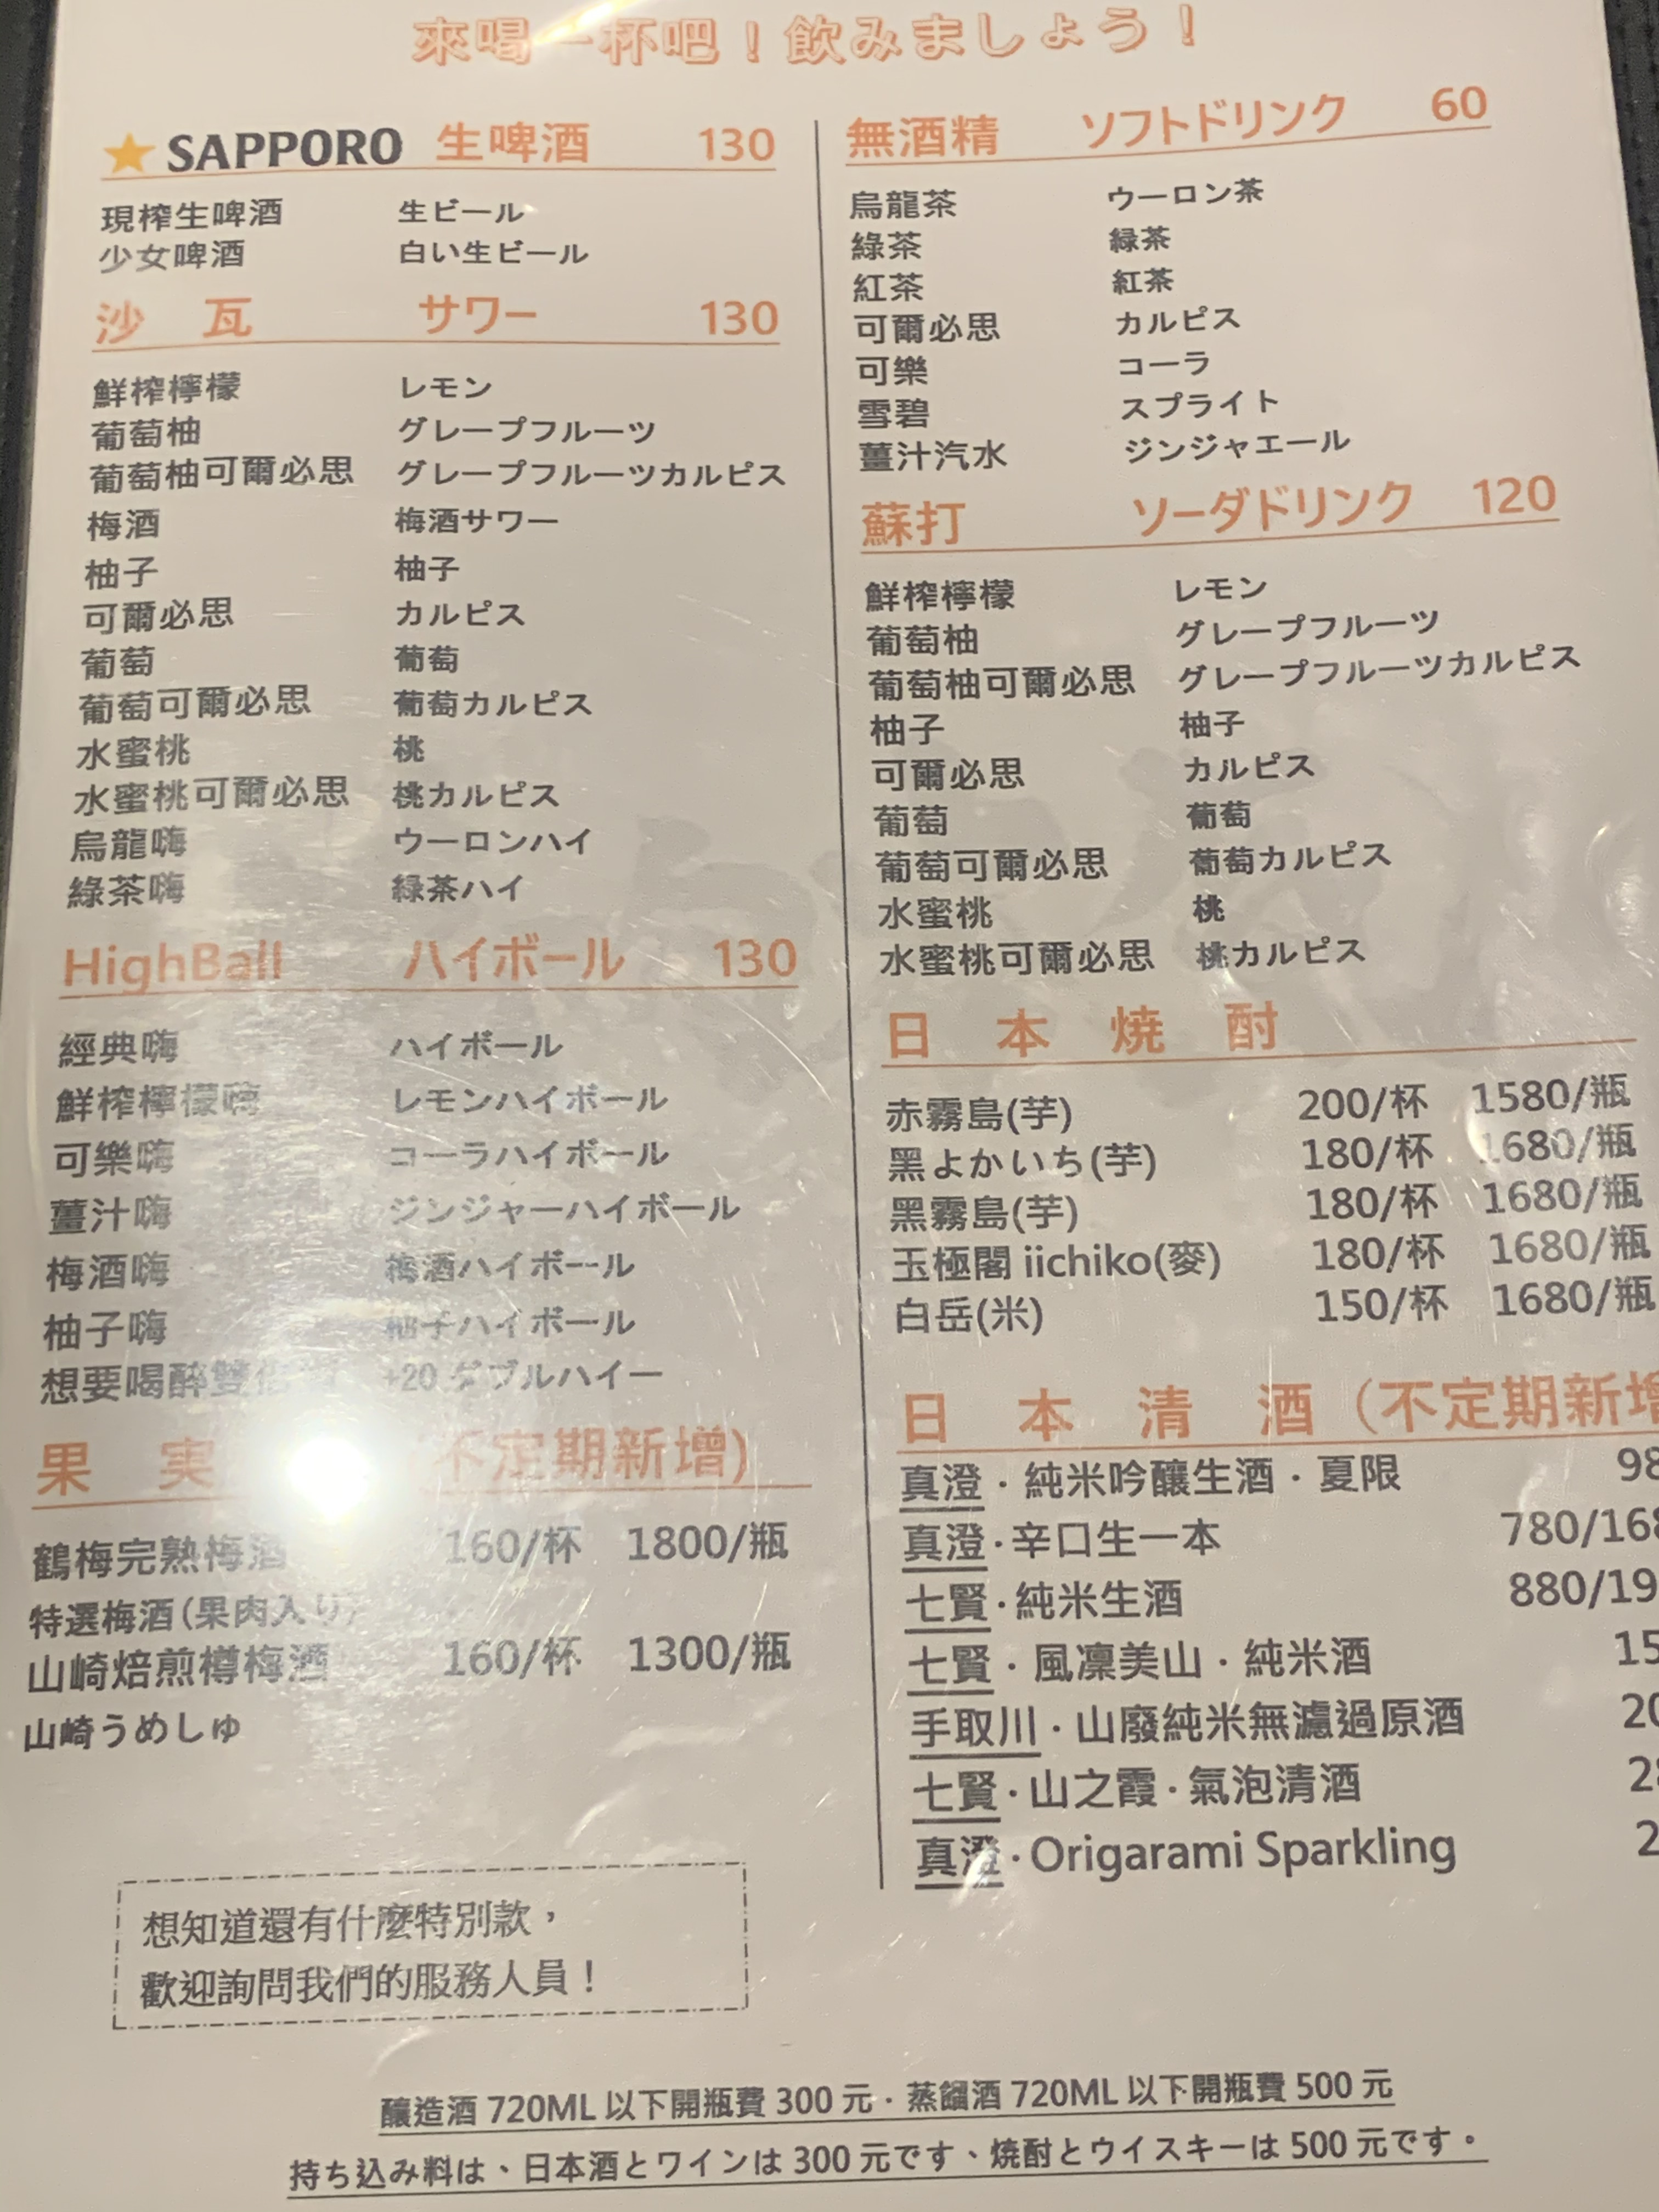 來喝一杯吧！飲みましょう！
★SAPPORO 生啤酒 130
現榨生啤酒 生ビール
少女啤酒 白い生ビール
沙 瓦 サワー 130
鮮榨檸檬 レモン
葡萄柚 グレープフルーツ
葡萄柚可爾必思 グレープフルーツカルピス
梅酒 梅酒サワー
柚子 柚子
可爾必思 カルピス
葡萄 葡萄
葡萄可爾必思 葡萄カルピス
水蜜桃 桃
水蜜桃可爾必思 桃カルピス
烏龍嗨 ウーロンハイ
綠茶嗨 緑茶ハイ
HighBall ハイボール 130
經典嗨 ハイボール
鮮榨檸檬嗨 レモンハイボール
可樂嗨 コーラハイボール
薑汁嗨 ジンジャーハイボール
梅酒嗨 梅酒ハイボール
柚子嗨 柚子ハイボール
想要喝醉雙倍 +20 ダブルハイー
果 実 (不定期新增)
鶴梅完熟梅酒 160/杯 1800/瓶
特選梅酒(果肉入り)
山崎焙煎樽梅酒 160/杯 1300/瓶
山崎うめしゅ
想知道還有什麼特別款，
歡迎詢問我們的服務人員！
無酒精 ソフトドリンク 60
烏龍茶 ウーロン茶
綠茶 緑茶
紅茶 紅茶
可爾必思 カルピス
可樂 コーラ
雪碧 スプライト
薑汁汽水 ジンジャエール
蘇打 ソーダドリンク 120
鮮榨檸檬 レモン
葡萄柚 グレープフルーツ
葡萄柚可爾必思 グレープフルーツカルピス
柚子 柚子
可爾必思 カルピス
葡萄 葡萄
葡萄可爾必思 葡萄カルピス
水蜜桃 桃
水蜜桃可爾必思 桃カルピス
日 本 焼 酎
赤霧島(芋) 200/杯 1580/瓶
黑よかいち(芋) 180/杯 1680/瓶
黑霧島(芋) 180/杯 1680/瓶
玉極閣 iichiko(麥) 180/杯 1680/瓶
白岳(米) 150/杯 1680/瓶
日 本 清 酒（不定期新增
真澄・純米吟釀生酒・夏限 98
真澄・辛口生一本 780/168
七賢・純米生酒 880/19
七賢・風凜美山・純米酒 15
手取川・山廢純米無濾過原酒 20
七賢・山之霞・氣泡清酒 2
真澄・Origarami Sparkling 2
釀造酒 720ML 以下開瓶費 300 元．蒸餾酒 720ML 以下開瓶費 500 元
持ち込み料は、日本酒とワインは 300 元です、焼酎とウイスキーは 500 元です。